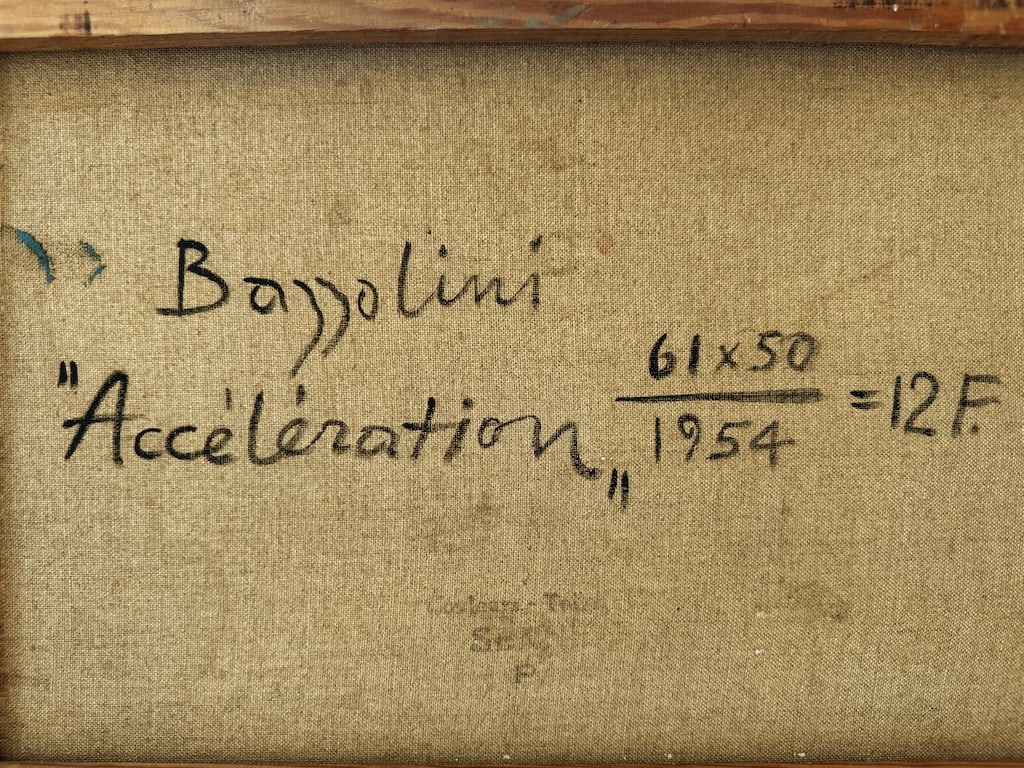 Bazzolini
"Accélération„ 61x50
1954 =12F.
Couleurs - Toiles